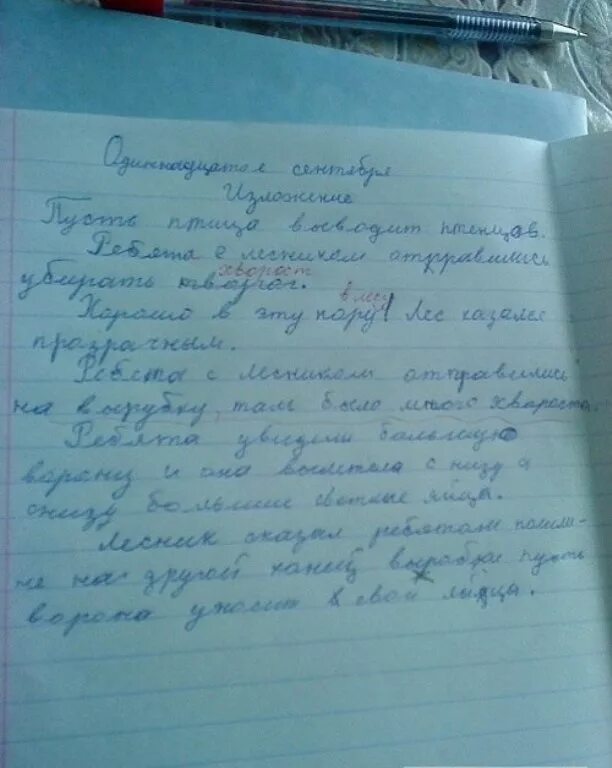 Одиннадцатое сентября
Изложение
Пусть птица выводит птенцов.
Ребята с лесником отправились
хворост
убирать
в лесу
Хорошо в эту пору! Лес казался
прозрачным.
Ребята с лесником отправились
на вырубку, там было много хвороста.
Ребята увидели большую
ворону и она вылетела с низу а
снизу большие светлые яйца.
Лесник сказал ребятам
на другой конец вырабки пусть
ворона в свои яйца.